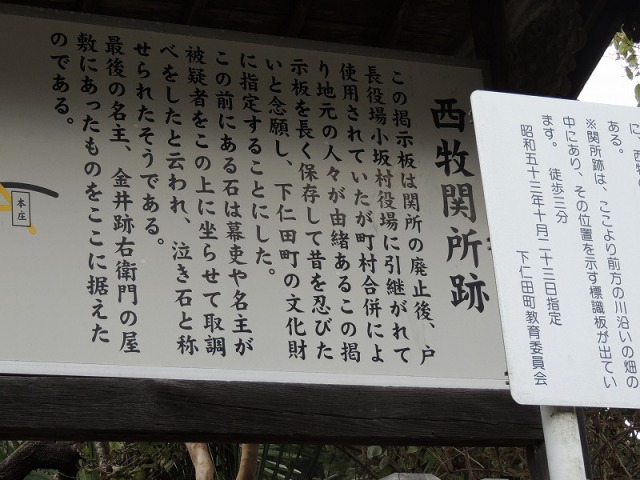 西牧関所跡
この掲示板は関所の廃止後、戸
長役場小坂村役場に引継がれて
使用されていたが町村合併によ
り地元の人々が由緒あるこの掲
示板を長く保存して昔を忍びた
いと念願し、下仁田町の文化財
に指定することにした。
この前にある石は幕吏や名主が
被疑者をこの上に坐らせて取調
べをしたと云われ、泣き石と称
せられたそうである。
最後の名主、金井跡右衛門の屋
敷にあったものをここに据えた
のである。
本庄
に、西牧
ある。
※関所跡は、ここより前方の川沿いの畑の
中にあり、その位置を示す標識板が出てい
ます。 徒歩三分
昭和五十三年十月二十三日指定
下仁田町教育委員会